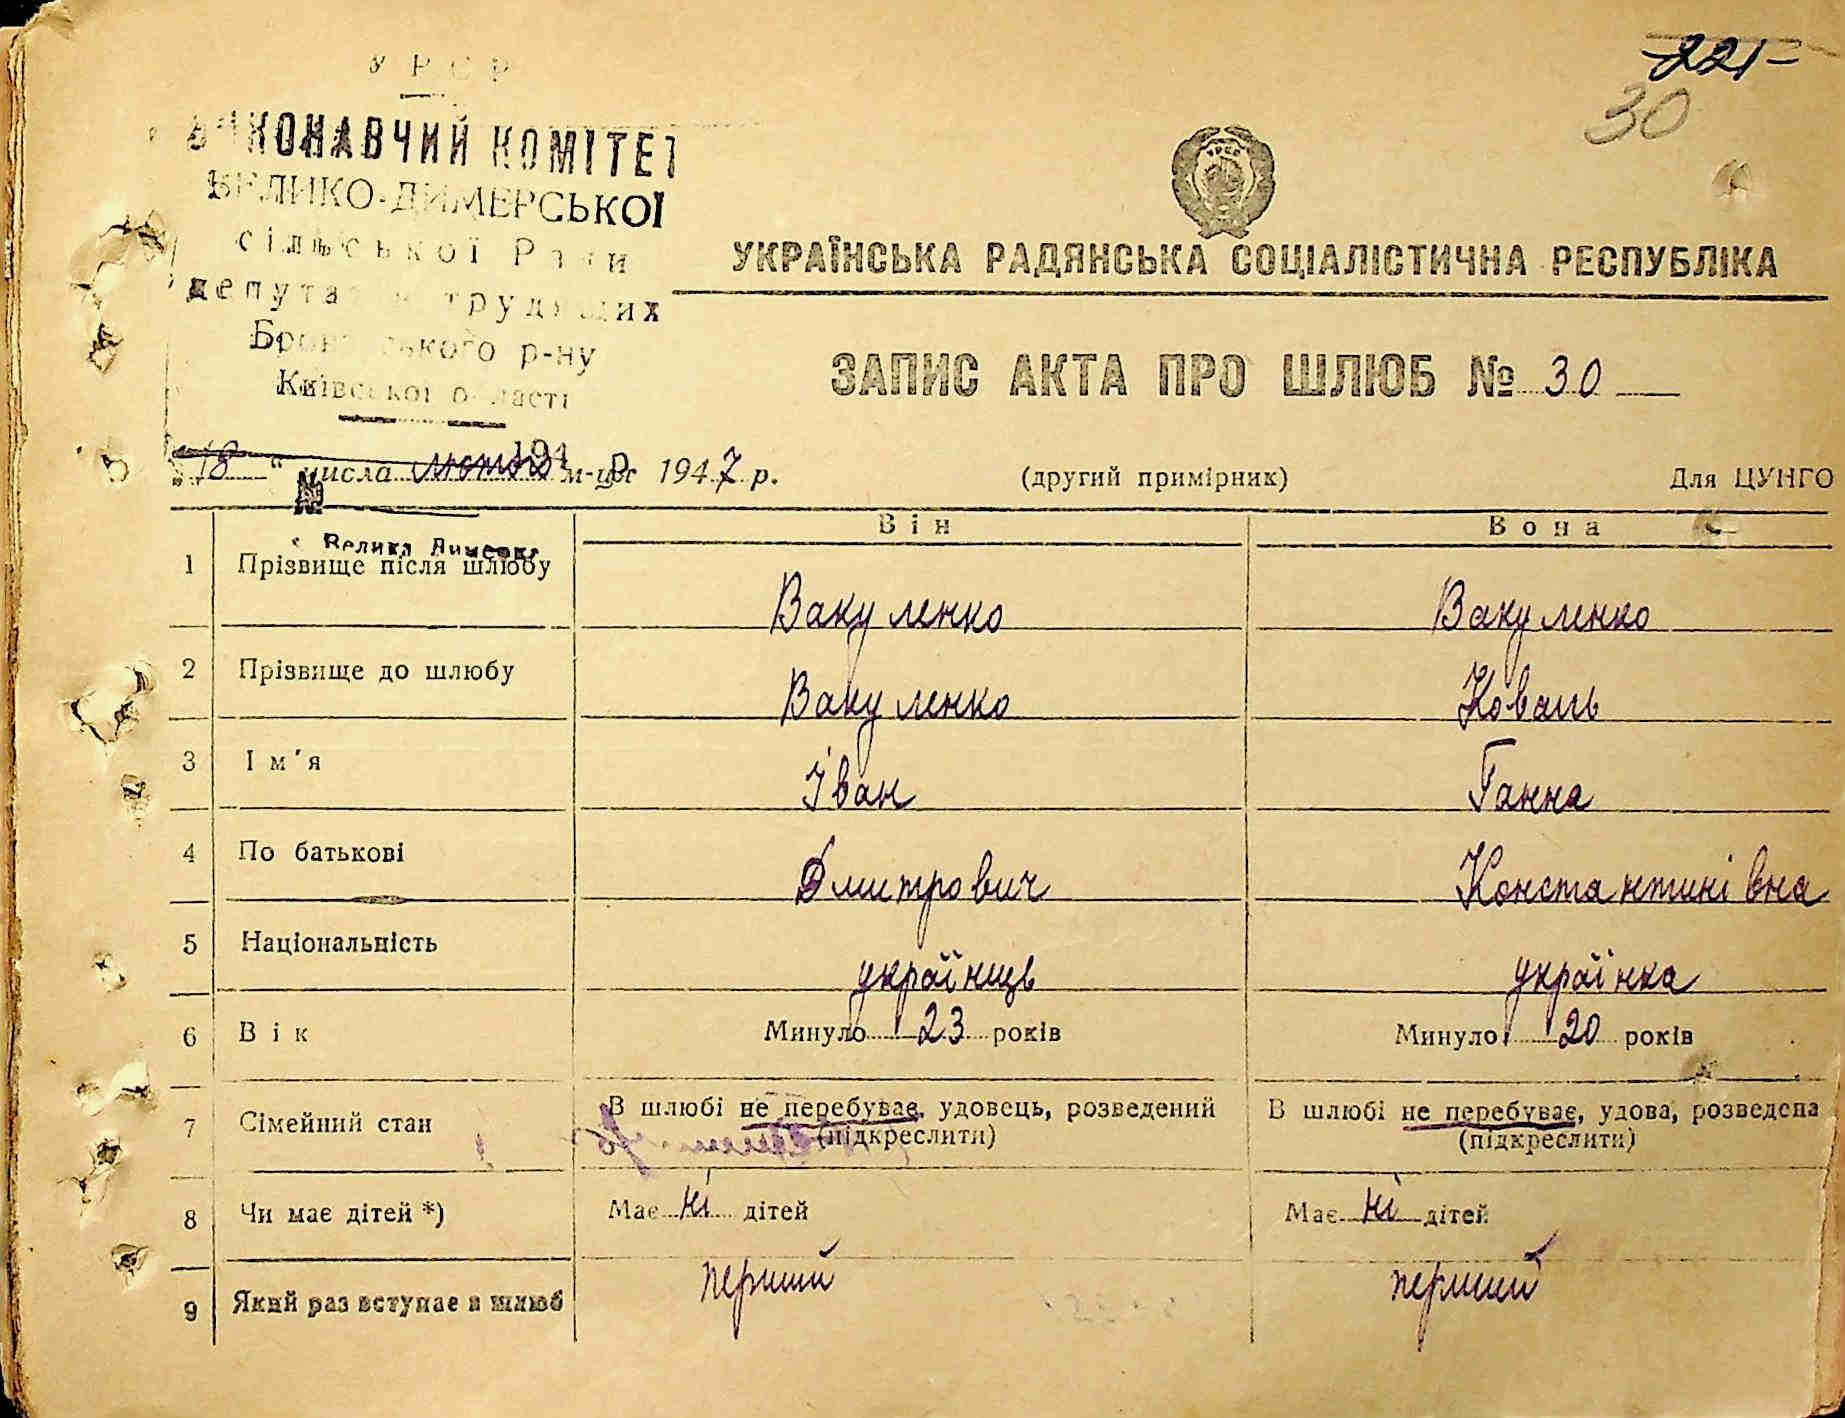 -221-
30
УРСР
ВИКОНАВЧИЙ КОМІТЕТ
ВЕЛИКО-ДИМЕРСЬКОЇ
сільської Ради
депутатів трудящих
Броварського р-ну
Київської області
УРСР
УКРАЇНСЬКА РАДЯНСЬКА СОЦІАЛІСТИЧНА РЕСПУБЛІКА
ЗАПИС АКТА ПРО ШЛЮБ № 30
194 р
„18“ числа лютого м-ця 1947 р. (другий примірник) Для ЦУНГО
№
с. Велика Димерка
Він Вона
1 Прізвище після шлюбу Вакуленко Вакуленко
2 Прізвище до шлюбу Вакуленко Коваль
3 Ім'я Іван Ганна
4 По батькові Дмитрович Константинівна
5 Національність українець українка
6 Вік Минуло 23 років Минуло 20 років
7 Сімейний стан В шлюбі не перебуває, удовець, розведений (підкреслити) В шлюбі не перебуває, удова, розведена (підкреслити)
8 Чи має дітей *) Має ні дітей Має ні дітей
9 Який раз вступає в шлюб перший перший